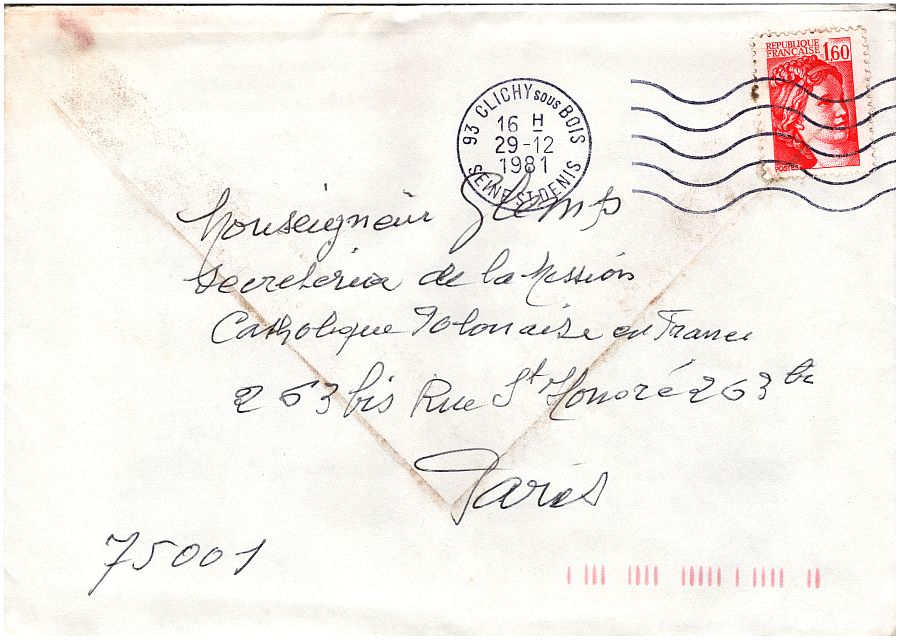 REPUBLIQUE
FRANÇAISE 1,60
POSTES
93 CLICHY SOUS BOIS
16 H
29-12
1981
SEINE ST-DENIS
Monseigneur Glemp
Secreteria de la Mission
Catholique Polonaise en France
263 bis Rue St Honoré 263 bis
Paris
75001